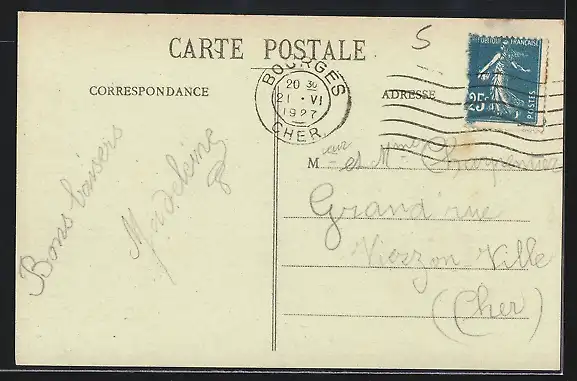 CARTE POSTALE
CORRESPONDANCE
ADRESSE
BOURGES
20 30
21 · VI
1927
CHER
5
REPUBLIQUE FRANÇAISE
25c
POSTES
Bons baisers
Madeleine
Mieur et Mme Charpentier
Grand'rue
Vierzon-Ville
(Cher)